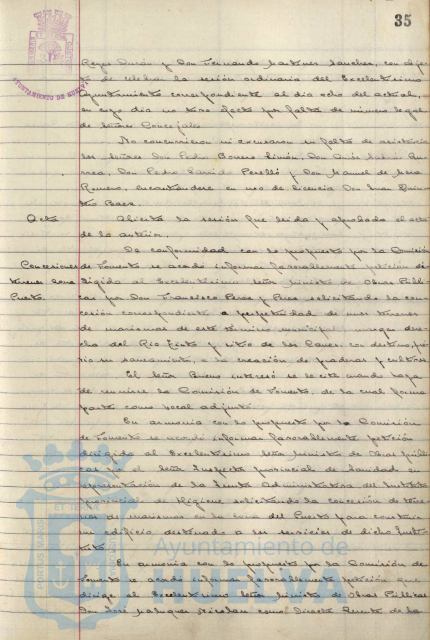 35
AYUNTAMIENTO DE HUELVA
Reyes Durán y Don Fernando Martínez Sánchez, con objeto
de celebrar la sesión ordinaria del Excelentísimo
Ayuntamiento correspondiente al día ocho del actual,
en cuyo día no tuvo efecto por falta de número legal
de Señores Concejales.
No concurrieron ni excusaron su falta de asistencia
los Señores Don Pedro Borrero Limón, Don
Don Pedro Garrido Perelló y Don Manuel de Mora
Romero, encontrándose en uso de licencia Don Juan
Baez.
Acta
Abierta la sesión fue leida y aprobada el acta
de la anterior.
Concesiones terrenos zona Puerto.
De conformidad con lo propuesto por la Comisión
de Fomento se acordó informar favorablemente petición di-
rigida al Excelentísimo Señor Ministro de Obras Públi-
cas por Don Francisco Perez y Perez solicitando la con-
cesión correspondiente a perpetuidad de unos terrenos
de marismas de este término municipal margen dere-
cha del Rio Tinto y sitio de los con destino, pre-
vio su saneamiento, a la creación de praderas y cultivos.
El Señor Bueno interesó se le cite cuando haya
de reunirse la Comisión de Fomento, de la cual forma
parte como vocal adjunto.
En armonía con lo propuesto por la Comisión
de Fomento se acordó informar favorablemente petición
dirigida al Excelentísimo Señor Ministro de Obras Públi-
cas por el Señor Inspector provincial de Sanidad en
representación de la Junta Administrativa del Instituto
provincial de Higiene solicitando la concesión de terre-
nos de marismas en la zona del Puerto para construir
un edificio destinado a los servicios de dicho Insti-
tuto.
En armonía con lo propuesto por la Comisión de
Fomento se acordó informar favorablemente petición que
dirige al Excelentísimo Señor Ministro de Obras Públicas
Don José como Director Gerente de la
Ayuntamiento de
HUELVA